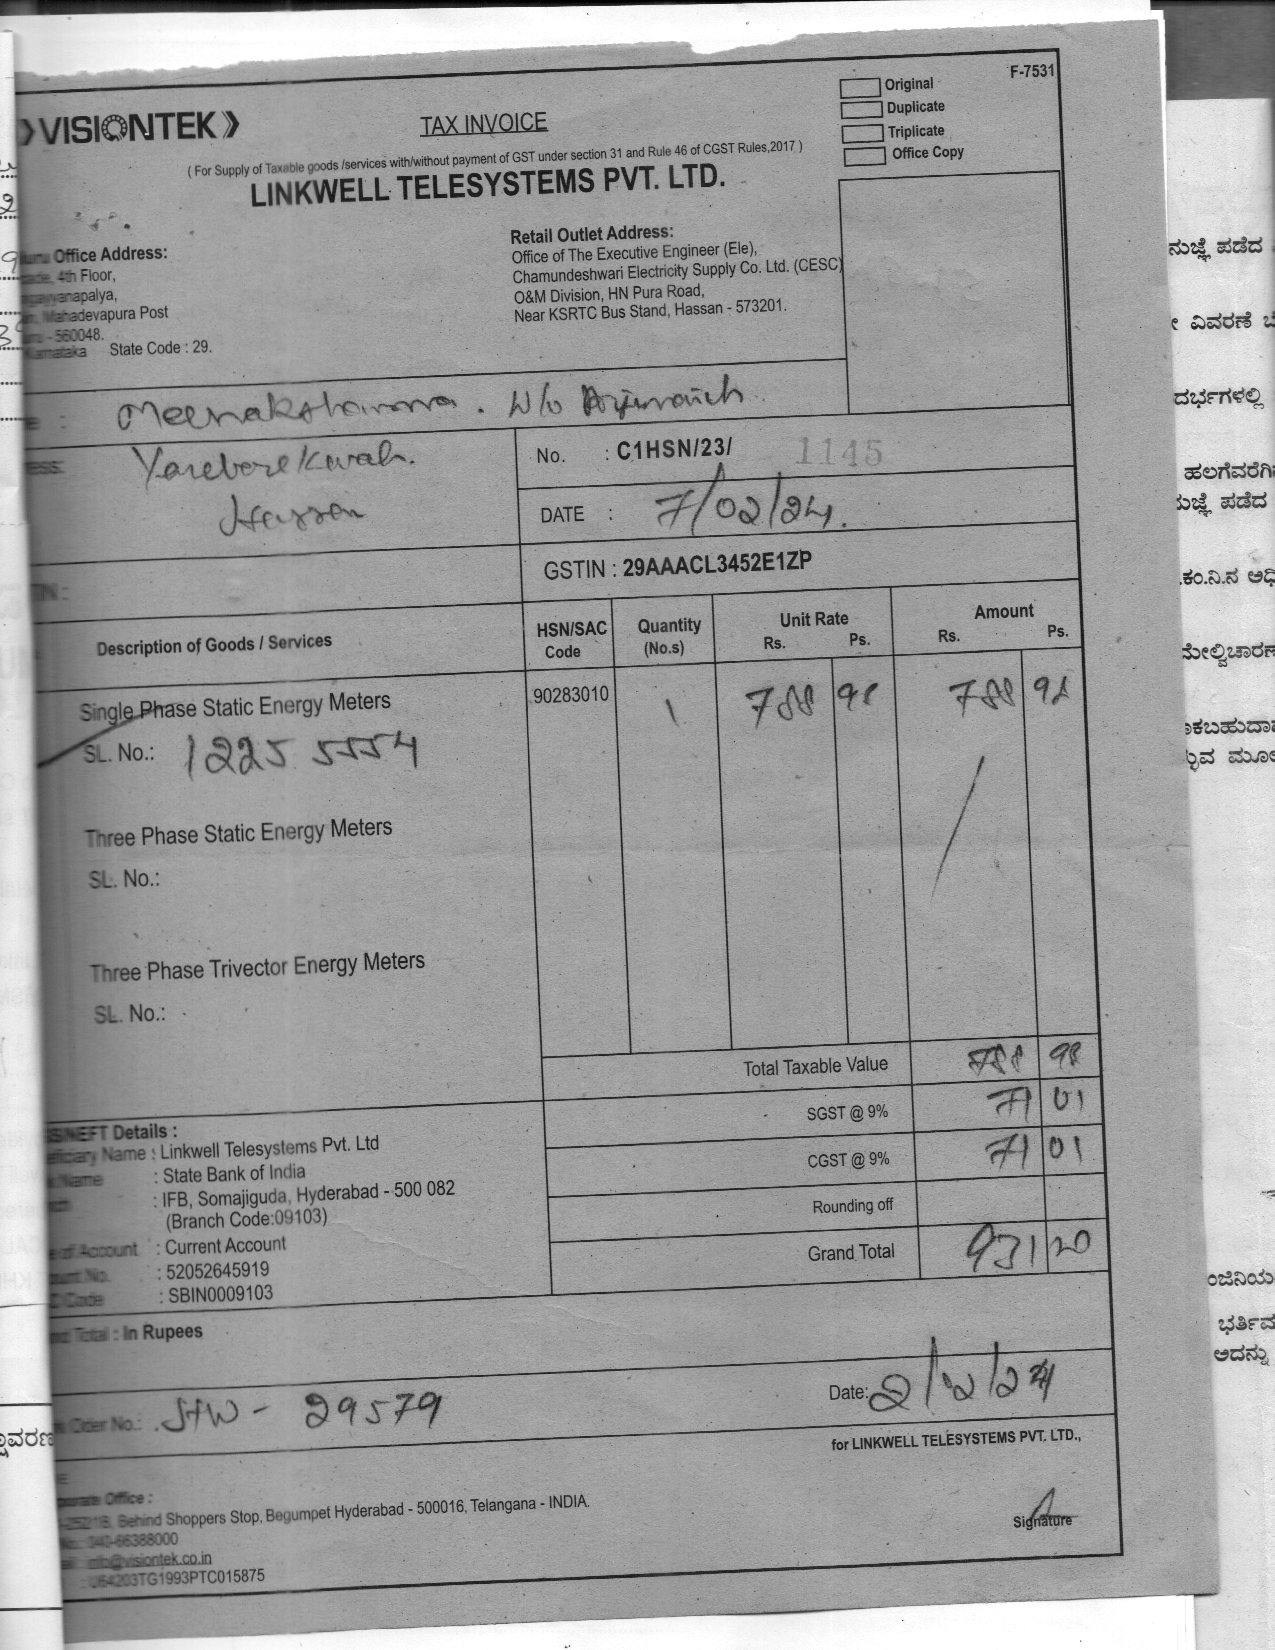 F-7531
Original
Duplicate
Triplicate
Office Copy
VISIONTEK
TAX INVOICE
( For Supply of Taxable goods /services with/without payment of GST under section 31 and Rule 46 of CGST Rules,2017 )
LINKWELL TELESYSTEMS PVT. LTD.
Office Address:
4th Floor,
Mahadevapura Post
- 560048.
Karnataka State Code : 29.
Retail Outlet Address:
Office of The Executive Engineer (Ele),
Chamundeshwari Electricity Supply Co. Ltd. (CESC)
O&M Division, HN Pura Road,
Near KSRTC Bus Stand, Hassan - 573201.
Meenakshamma. W/o
Hassan
No. : C1HSN/23/ 1145
DATE : 7/02/24.
GSTIN : 29AAACL3452E1ZP
Description of Goods / Services
HSN/SAC Code
Quantity (No.s)
Unit Rate
Rs. Ps.
Amount
Rs. Ps.
Single Phase Static Energy Meters 90283010 1 788 98 788 98
SL. No.: 12255554
Three Phase Static Energy Meters
SL. No.:
Three Phase Trivector Energy Meters
SL. No.:
Total Taxable Value 788 98
SGST @ 9% 71 01
CGST @ 9% 71 01
Rounding off
Grand Total 931 20
NEFT Details :
Name : Linkwell Telesystems Pvt. Ltd
Name : State Bank of India
: IFB, Somajiguda, Hyderabad - 500 082
(Branch Code:09103)
of Account : Current Account
No. : 52052645919
Code : SBIN0009103
Total : In Rupees
Order No.: HW - 29579
Date: 2/12/24
for LINKWELL TELESYSTEMS PVT. LTD.,
Office :
Behind Shoppers Stop, Begumpet Hyderabad - 500016, Telangana - INDIA.
040-66388000
info@visiontek.co.in
U64203TG1993PTC015875
Signature
ನುಜ್ಞೆ ಪಡೆದ
ವಿವರಣೆ
ದರ್ಭಗಳಲ್ಲಿ
ಪಡೆದ